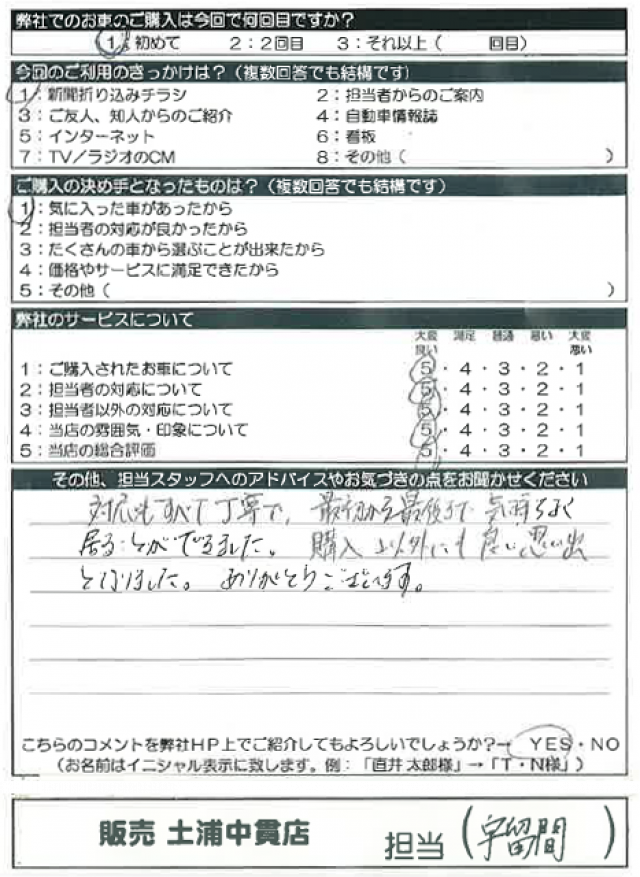 弊社でのお車のご購入は今回で何回目ですか？
1：初めて　2：2回目　3：それ以上（　　回目）
今回のご利用のきっかけは？（複数回答でも結構です）
1：新聞折り込みチラシ　2：担当者からのご案内
3：ご友人、知人からのご紹介　4：自動車情報誌
5：インターネット　6：看板
7：TV／ラジオのCM　8：その他（　　）
ご購入の決め手となったものは？（複数回答でも結構です）
1：気に入った車があったから
2：担当者の対応が良かったから
3：たくさんの車から選ぶことが出来たから
4：価格やサービスに満足できたから
5：その他（　　）
弊社のサービスについて
大変良い　満足　普通　悪い　大変悪い
1：ご購入されたお車について　5・4・3・2・1
2：担当者の対応について　5・4・3・2・1
3：担当者以外の対応について　5・4・3・2・1
4：当店の雰囲気・印象について　5・4・3・2・1
5：当店の総合評価　5・4・3・2・1
その他、担当スタッフへのアドバイスやお気づきの点をお聞かせください
対応もすべて丁寧で、最初から最後まで気持ちよく
居ることができました。購入以外にも良い思い出
となりました。ありがとうございます。
こちらのコメントを弊社HP上でご紹介してもよろしいでしょうか？→ YES・NO
（お名前はイニシャル表示に致します。例：「直井 太郎様」→「T・N様」）
販売 土浦中貫店　担当（宇留間）